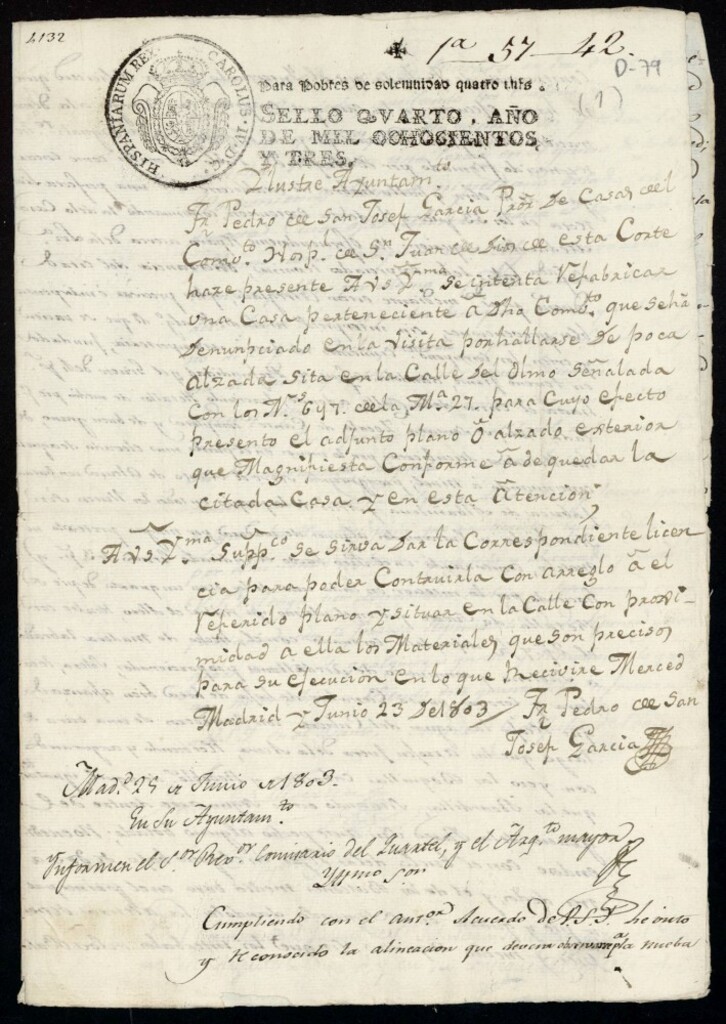 4132
1ª 57-42.
D-79
(1)
HISPANIARUM REX CAROLUS IV D G
Para Pobres de solemnidad quatro mrs.
SELLO QVARTO, AÑO
DE MIL OCHOCIENTOS
Y TRES.
Ylustre Ayuntam.to
Fr. Pedro de San Josef Garcia Pror. De Casas del
Comb.to Hosp.l de S.n Juan de Dios de esta Corte
haze presente A Vs Yma. se intenta Refabricar
una Casa perteneciente â Dho Comb.to que se hâ
Denunpciado en la Visita por hallarse De poca
alzada sita en la Calle Del Olmo Señalada
Con los N.s 6 y 7. de la M.a 27. para Cuyo efecto
presento el adjunto plano ô alzado exterior
que Magnifiesta Conforme â de quedar la
citada Casa y en esta âtencion
A Vs Y.ma Supp.co se sirva Dar la Correspondiente licen
cia para poder Contruirla Con arreglo â el
Referido plano y situar en la Calle Con proxi-
midad a ella los Materiales que son precisos
para su ejecución en lo que Recivire Merced
Madrid y Junio 23 De 1803 Fr. Pedro de San
Josef Garcia
Mad.d 25 de Junio de 1803.
En su Ayuntam.to
Informen el S.or Comisario del Quartel, y el Arq.to mayor
Yllmo Sor
Cumpliendo con el antor Acuerdo de V.S.Y. he visto
y reconocido la alineacion que devera la nueba